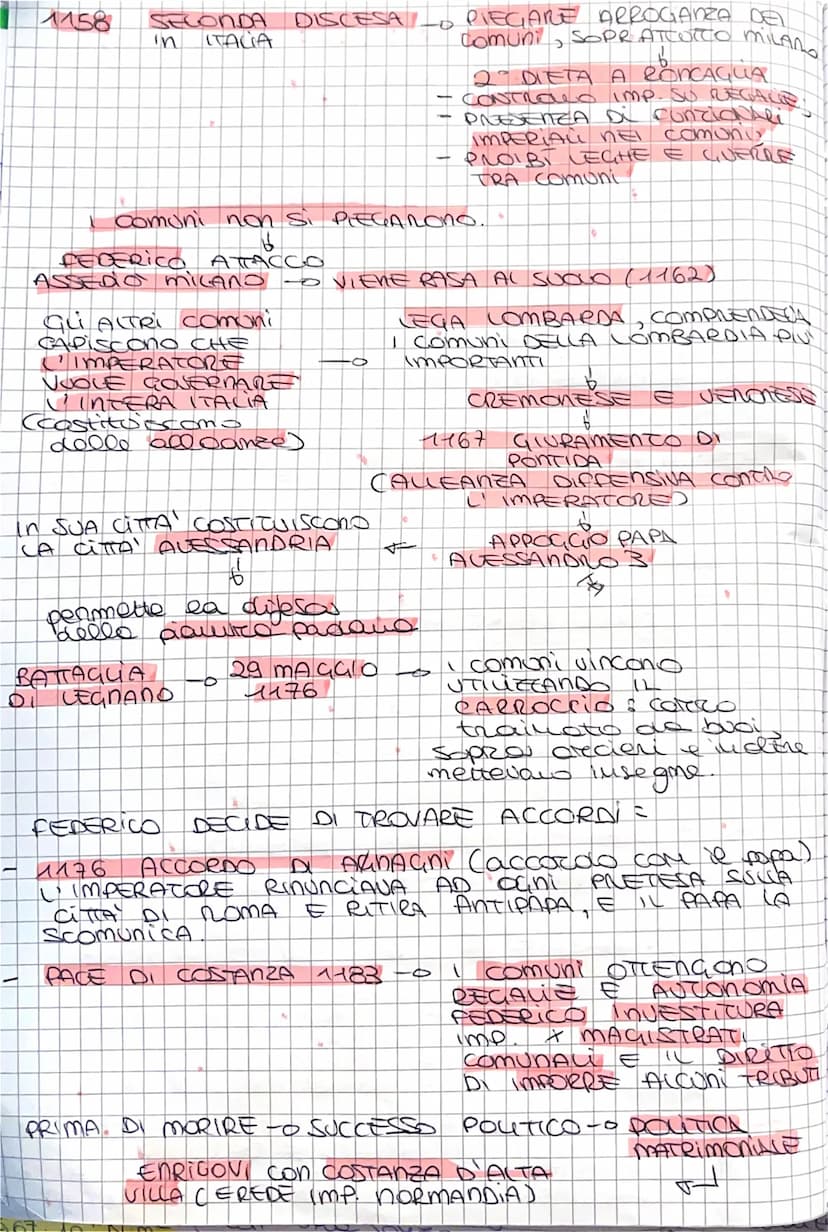 1158 SECONDA DISCESA → PIEGARE ARROGANZA DEI
in ITALIA comuni, SOPRATTUTTO MILANO
↓
2ª DIETA A RONCAGLIA
- CONTROLLO IMP. SU REGALIE;
- PRESENZA DI FUNZIONARI
IMPERIALI NEI COMUNI;
- PROIBÌ LEGHE E GUERRE
TRA COMUNI
I COMUNI NON SI PIEGARONO.
↓
FEDERICO ATTACCO
ASSEDIO MILANO → VIENE RASA AL SUOLO (1162)
GLI ALTRI COMUNI
CAPISCONO CHE
L'IMPERATORE
VUOLE GOVERNARE
L'INTERA ITALIA
(costituiscono
delle alleanze)
→ LEGA LOMBARDA, COMPRENDEVA
I COMUNI DELLA LOMBARDIA PIÙ
IMPORTANTI
↓
CREMONESE E VERONESE
↓
1167 GIURAMENTO DI
PONTIDA
(ALLEANZA DIFFENSIVA CONTRO
L'IMPERATORE)
↓
APPOGGIO PAPA
ALESSANDRO 3
←
IN SUA CITTA' COSTITUISCONO
LA CITTA' ALESSANDRIA
↓
permette la difesa
della pianura padana
BATTAGLIA
DI LEGNANO → 29 MAGGIO
1176
→ i comuni vincono
UTILIZZANDO IL
CARROCCIO: carro
trainato da buoi,
sopra arcieri e inoltre
mettevano insegne.
FEDERICO DECIDE DI TROVARE ACCORDI =
- 1176 ACCORDO DI AGNAGNI (accordo con il papa)
L'IMPERATORE RINUNCIAVA AD OGNI PRETESA SULLA
CITTÀ DI ROMA E RITIRA ANTIPAPA, E IL PAPA LA
SCOMUNICA.
- PACE DI COSTANZA 1183 → I COMUNI OTTENGONO
REGALIE E AUTONOMIA
FEDERICO INVESTITURA
imp. x MAGISTRATI
COMUNALI E IL DIRITTO
DI IMPORRE ALCUNI TRIBUTI
PRIMA DI MORIRE → SUCCESSO POLITICO → POLITICA
MATRIMONIALE
ENRICO VI CON COSTANZA D'ALTA
VILLA (EREDE IMP. NORMANDIA)